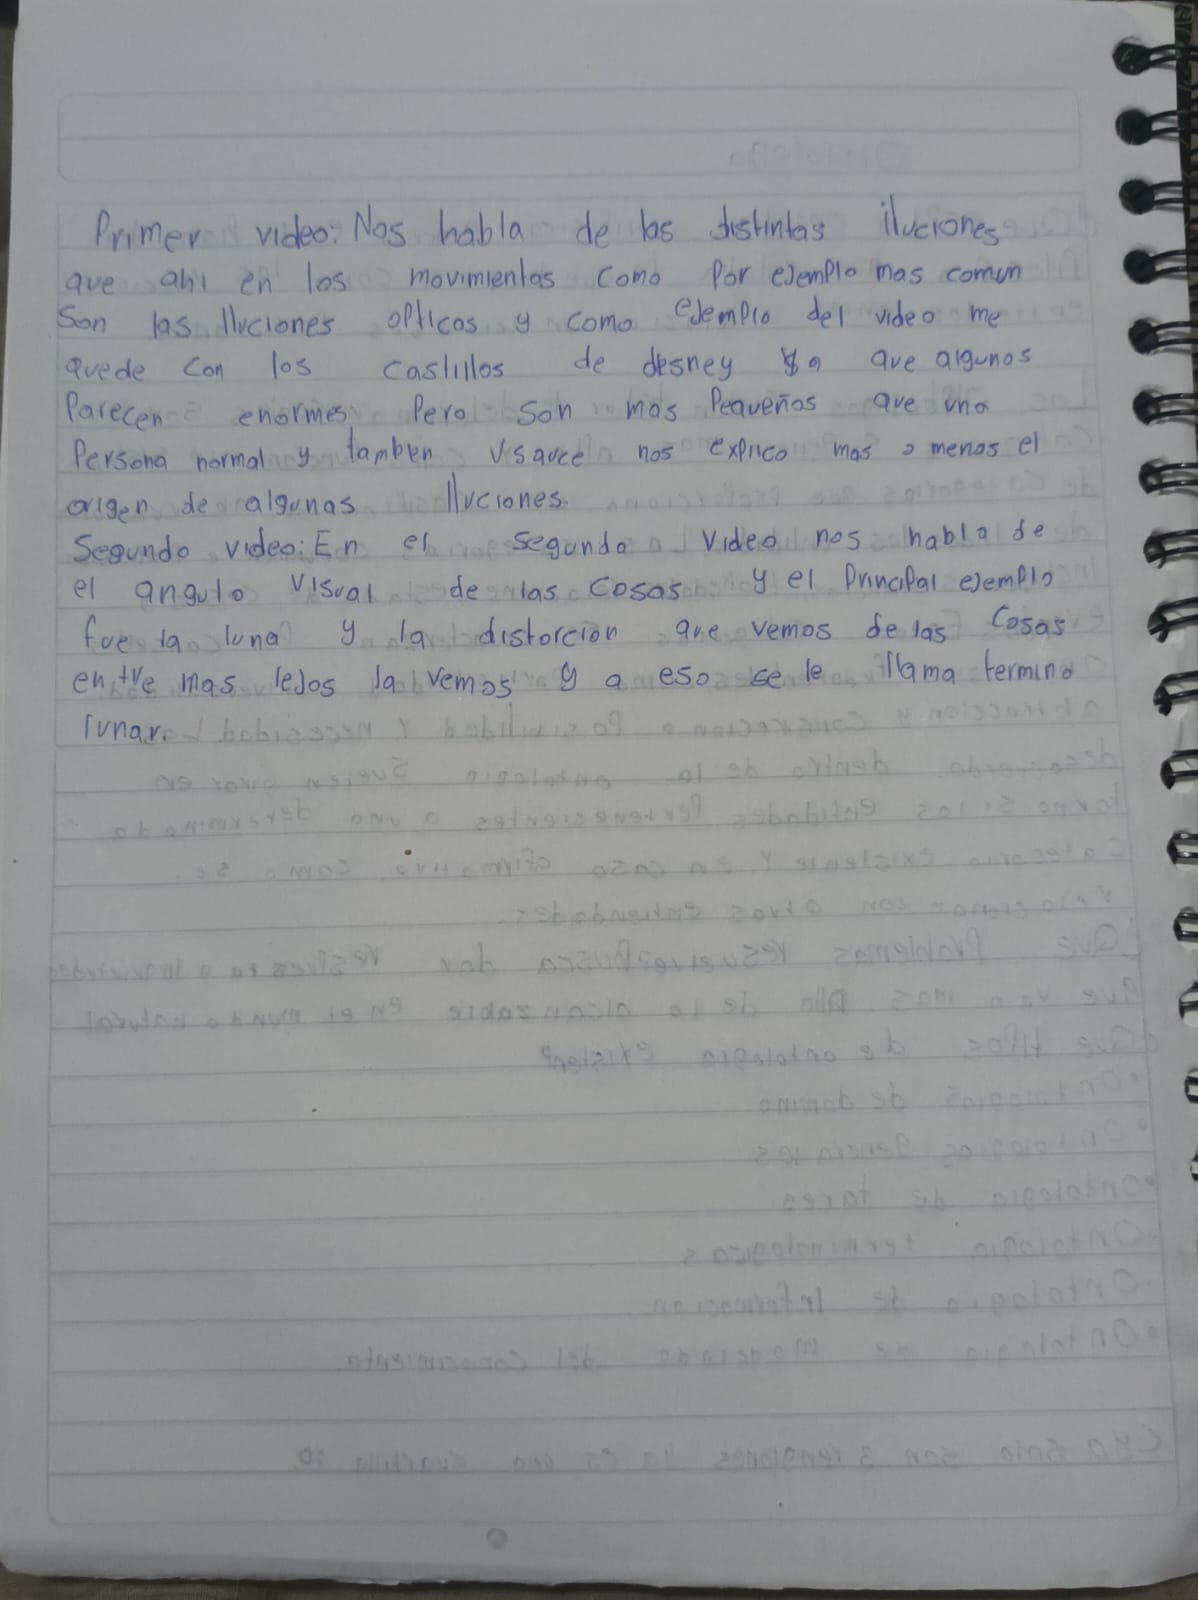 Primer video: Nos habla de las distintas iluciones
que ahi en los movimientos como por ejemplo mas comun
Son las Iluciones opticas y como ejemplo del video me
quede con los castillos de desney ya que algunos
Parecen enormes Pero son mas Pequeños que una
Persona normal y tamben Visauce nos explico mas o menos el
origen de algunas Iluciones.
Segundo video: En el segundo Video nos habla de
el angulo visual de las cosas y el Principal ejemplo
fue la luna y la distorcion que vemos de las Cosas
entre mas lejos la vemos y a eso se le llama termino
lunar.